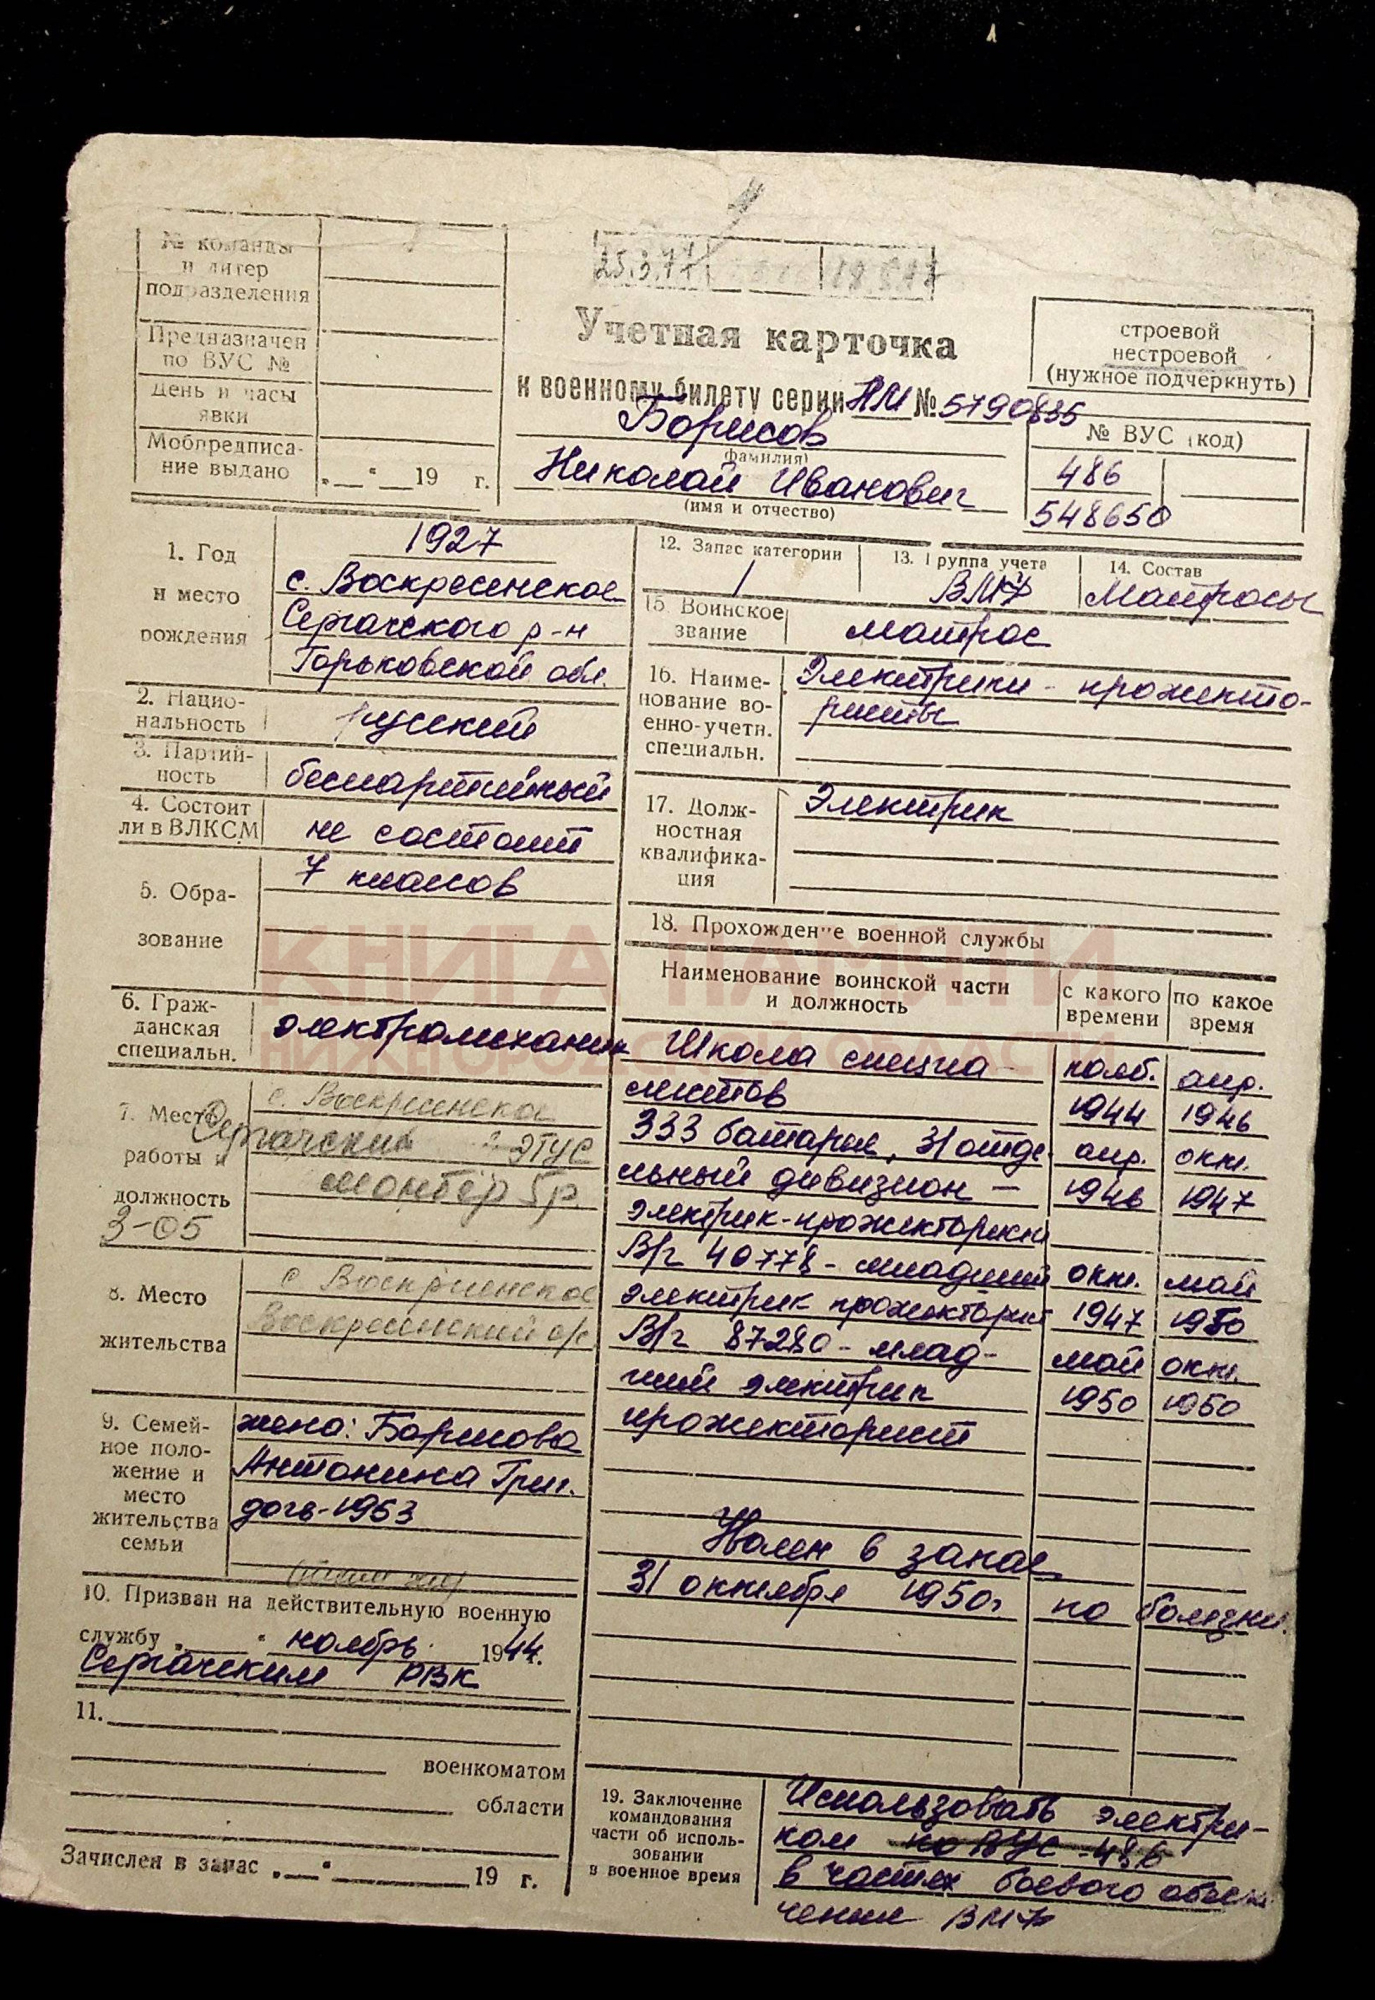 № команды
и литер
подразделения
Предназначен
по ВУС №
День и часы
явки
Мобпредписа-
ние выдано
19 г.
25.3.77
Учетная карточка
к военному билету серии НМ № 5790835
Борисов
(фамилия)
Николай Иванович
(имя и отчество)
строевой
нестроевой
(нужное подчеркнуть)
№ ВУС (код)
486
548650
1. Год
и место
рождения
1927
с. Воскресенское
Сергачского р-н
Горьковской обл.
2. Нацио-
нальность
русский
3. Партий-
ность
беспартийный
4. Состоит
ли в ВЛКСМ
не состоит
5. Обра-
зование
7 классов
6. Граж-
данская
специальн.
электромеханик
7. Место
работы и
должность
с. Воскресенское
Сергачский ЭТУС
монтёр 5р.
3-05
8. Место
жительства
с Воскресенское
Воскресенский с/с
9. Семей-
ное поло-
жение и
место
жительства
семьи
жена: Борисова
Антонина Григ.
дочь-1953
10. Призван на действительную военную
службу „ “ ноябрь 1944 г.
Сергачским РВК
11.
военкоматом
области
Зачислен в запас „ “ 19 г.
12. Запас категории
1
13. Группа учета
ВМФ
14. Состав
Матросы
15. Воинское
звание
матрос
16. Наиме-
нование во-
енно-учетн.
специальн.
Электрики-прожекто-
ристы
17. Долж-
ностная
квалифика-
ция
Электрик
18. Прохождение военной службы
Наименование воинской части
и должность
с какого
времени
по какое
время
Школа специа- нояб. апр.
листов 1944 1946
333 батарея, 31 отде- апр. окт.
льный дивизион - 1946 1947
электрик-прожекторист
В/г 40778 - младший окт. май
электрик прожекторист 1947 1950
В/г 87280 - млад- май окт.
ший электрик 1950 1950
прожекторист
Уволен в запас
31 октября 1950г по болезни.
19. Заключение
командования
части об исполь-
зовании
в военное время
Использовать электри-
ком по ВУС-486
в частях боевого обеспе-
чения ВМФ
КНИГА ПАМЯТИ
НИЖЕГОРОДСКОЙ ОБЛАСТИ